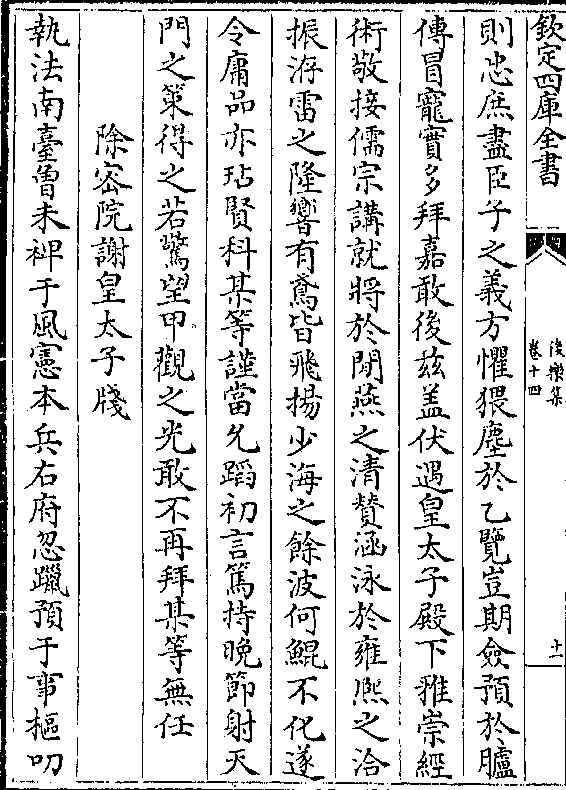 欽定四庫全書
後樂集
卷十四
十一
則忠庶盡臣子之義方懼猥塵於乙覽豈期僉預於臚
傳冒寵實多拜嘉敢後兹盖伏遇皇太子殿下雅崇經
術敬接儒宗講就將於閒燕之清贊涵泳於雍熈之洽
振洊雷之隆響有鳶皆飛揚少海之餘波何鯤不化遂
令庸品亦玷賢科某等謹當允蹈初言篤持晚節射天
門之策得之若驚望甲觀之光敢不再拜某等無任
除宻院謝皇太子牋
執法南臺曾未裨于風憲本兵右府忽躐預于事樞叨